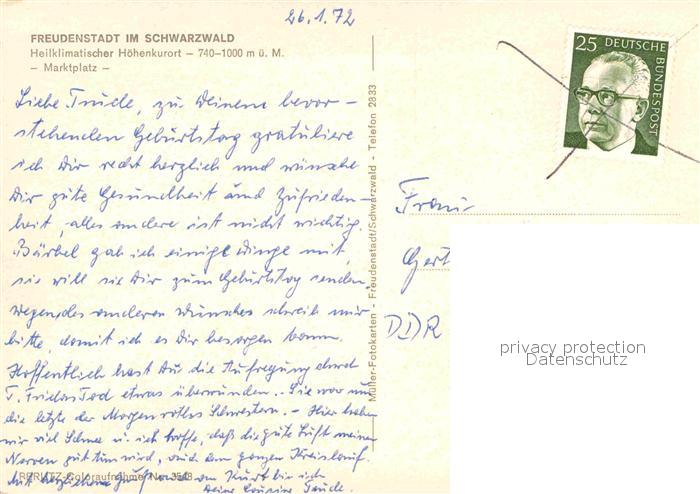 26.1.72
FREUDENSTADT IM SCHWARZWALD
Heilklimatischer Höhenkurort – 740–1000 m ü. M.
– Marktplatz –
Liebe Trude, zu Deinem bevor-
stehenden Geburtstag gratuliere
ich Dir recht herzlich und wünsche
Dir gute Gesundheit und Zufrieden-
heit, alles andere ist nicht wichtig.
Bärbel gab ich einige Dinge mit,
sie will sie Dir zum Geburtstag senden.
Wegen des anderen Wunsches schreib mir
bitte, damit ich es Dir besorgen kann.
Hoffentlich hast Du die Aufregung durch
T. Fridas Tod etwas überwunden. Sie war nun
die letzte der Morgenroths Schwestern. – Hier haben
wir viel Schnee u. ich hoffe, daß die gute Luft meinen
Nerven gut tun wird, auch dem ganzen Kreislauf.
Mit herzlichem Gruß auch an Kurt bin ich
Deine Cousine Trude.
RERLITZ-Coloraufnahme Nr. 3548
Müller-Fotokarten - Freudenstadt/Schwarzwald - Telefon 2833
25 DEUTSCHE
BUNDESPOST
Frau
Gert
DDR
privacy protection
Datenschutz